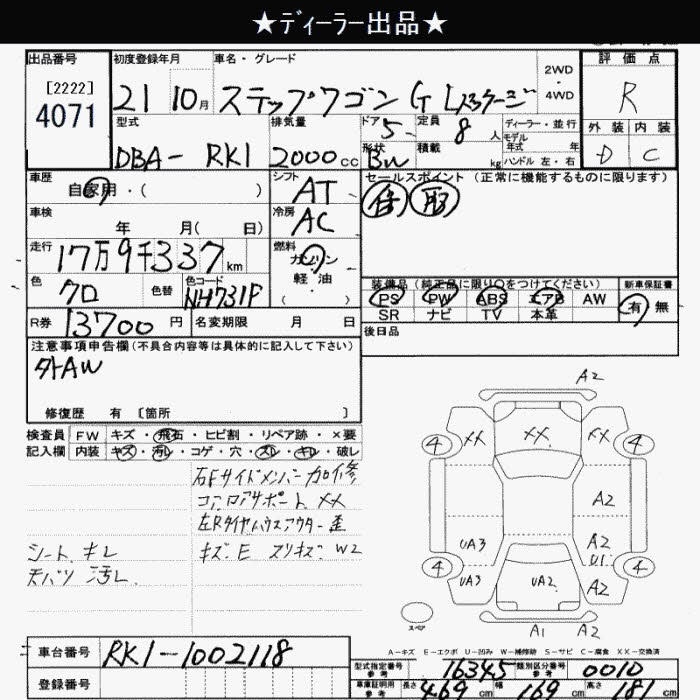 ★ディーラー出品★
出品番号 初度登録年月 車名・グレード 2WD・4WD 評価点
[2222]
4071
21 10月 ステップワゴン G Lパッケージ R
型式 排気量 ドア 定員 ディーラー・並行 外装 内装
DBA- RK1 2000cc 5 8人 モデル年式 年 D C
形状 BW 積載 kg ハンドル 左・右
車歴 自家用・( ) シフト AT セールスポイント (正常に機能するものに限ります)
車検 年 月( 日) 冷房 AC
走行 17万9千337km 燃料 ガソリン 軽油 ( )
色 クロ 色替 色コード NH731P
装備品 (純正品に限り○をつけてください) 新車保証書
PS PW ABS エアB AW 有・無
SR ナビ TV 本革
R券 13700円 名変期限 月 日 後日品
注意事項申告欄 (不具合内容等は具体的に記入して下さい)
外AW
修復歴 有 〔箇所 〕
検査員 FW キズ・飛石・ヒビ割・リペア跡・×要
記入欄 内装 キズ・汚レ・コゲ・穴・スレ・キレ・破レ
右Fサイドメンバー 加修
コア、ロアサポート XX
左Rタイヤハウスアウター 歪
シート キレ キズ:E スリキズ: W2
天バリ 汚レ
A2
4 XX XX XX 4
A2
UA3 A2
U1
4 UA3 UA2 A2 4
スペア
A1 A2
A－キズ E－エクボ U－凹み W－補修跡 S－サビ C－腐食 XX－交換済
車台番号 RK1-1002118
型式指定番号 参考 16345 類別区分番号 参考 0010
登録番号
車庫証明用 参考 長さ 469cm 幅 169cm 高さ 181cm